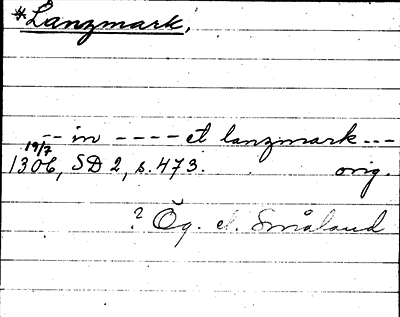 *Lanzmark,
-- in ---- et lanzmark ---
19/7
1306, SD 2, s. 473. orig.
? Ög. el. Småland